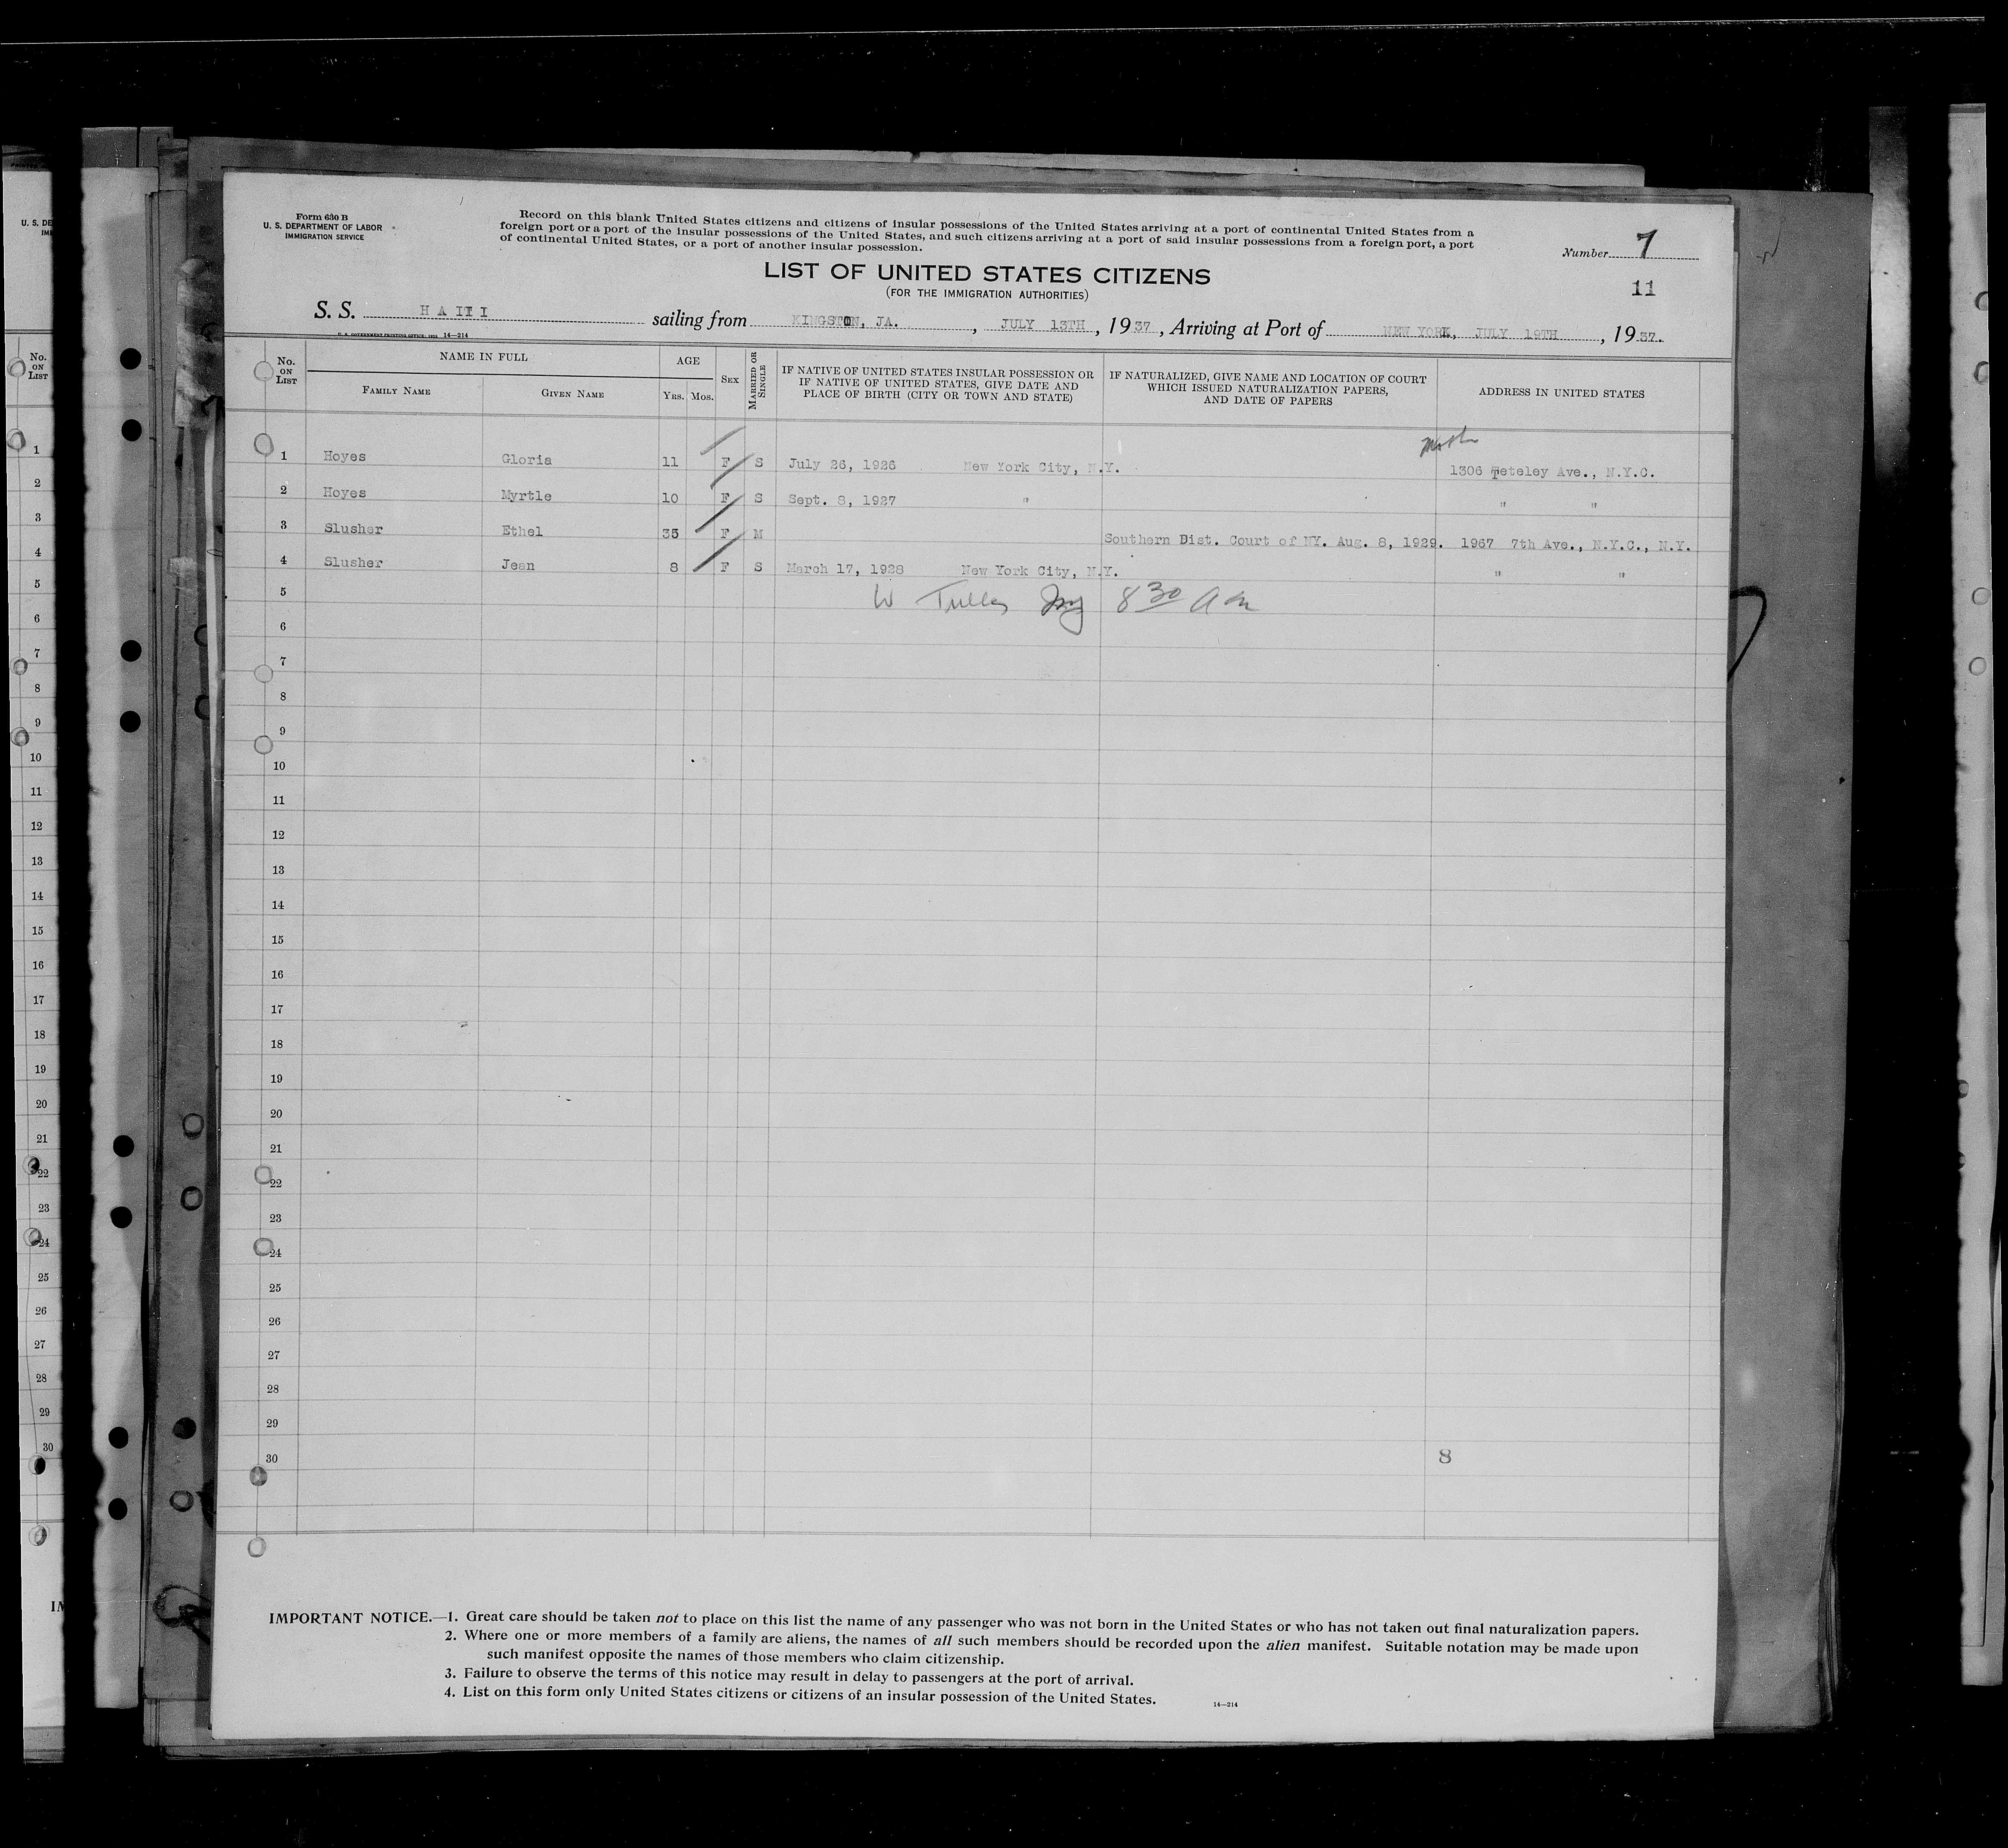 Form 630 B
U. S. DEPARTMENT OF LABOR
IMMIGRATION SERVICE
Record on this blank United States citizens and citizens of insular possessions of the United States arriving at a port of continental United States from a
foreign port or a port of the insular possessions of the United States, and such citizens arriving at a port of said insular possessions from a foreign port, a port
of continental United States, or a port of another insular possession.
Number 7
11
LIST OF UNITED STATES CITIZENS
(FOR THE IMMIGRATION AUTHORITIES)
S. S. HAITI sailing from KINGSTON, JA. , JULY 13TH , 1937 , Arriving at Port of NEW YORK, JULY 19TH , 1937.
14—214
No. ON LIST
NAME IN FULL
FAMILY NAME GIVEN NAME
AGE
YRS. MOS.
SEX
MARRIED OR SINGLE
IF NATIVE OF UNITED STATES INSULAR POSSESSION OR
IF NATIVE OF UNITED STATES, GIVE DATE AND
PLACE OF BIRTH (CITY OR TOWN AND STATE)
IF NATURALIZED, GIVE NAME AND LOCATION OF COURT
WHICH ISSUED NATURALIZATION PAPERS,
AND DATE OF PAPERS
ADDRESS IN UNITED STATES
1 Hoyes Gloria 11 F S July 26, 1926 New York City, N.Y. 1306 Teteley Ave., N.Y.C.
2 Hoyes Myrtle 10 F S Sept. 8, 1927 " " "
3 Slusher Ethel 35 F M Southern Dist. Court of NY. Aug. 8, 1929. 1967 7th Ave., N.Y.C., N.Y.
4 Slusher Jean 8 F S March 17, 1928 New York City, N.Y. " "
5 W 8 30 am
6
7
8
9
10
11
12
13
14
15
16
17
18
19
20
21
22
23
24
25
26
27
28
29
30 8
IMPORTANT NOTICE.—1. Great care should be taken not to place on this list the name of any passenger who was not born in the United States or who has not taken out final naturalization papers.
2. Where one or more members of a family are aliens, the names of all such members should be recorded upon the alien manifest. Suitable notation may be made upon
such manifest opposite the names of those members who claim citizenship.
3. Failure to observe the terms of this notice may result in delay to passengers at the port of arrival.
4. List on this form only United States citizens or citizens of an insular possession of the United States.
14—214